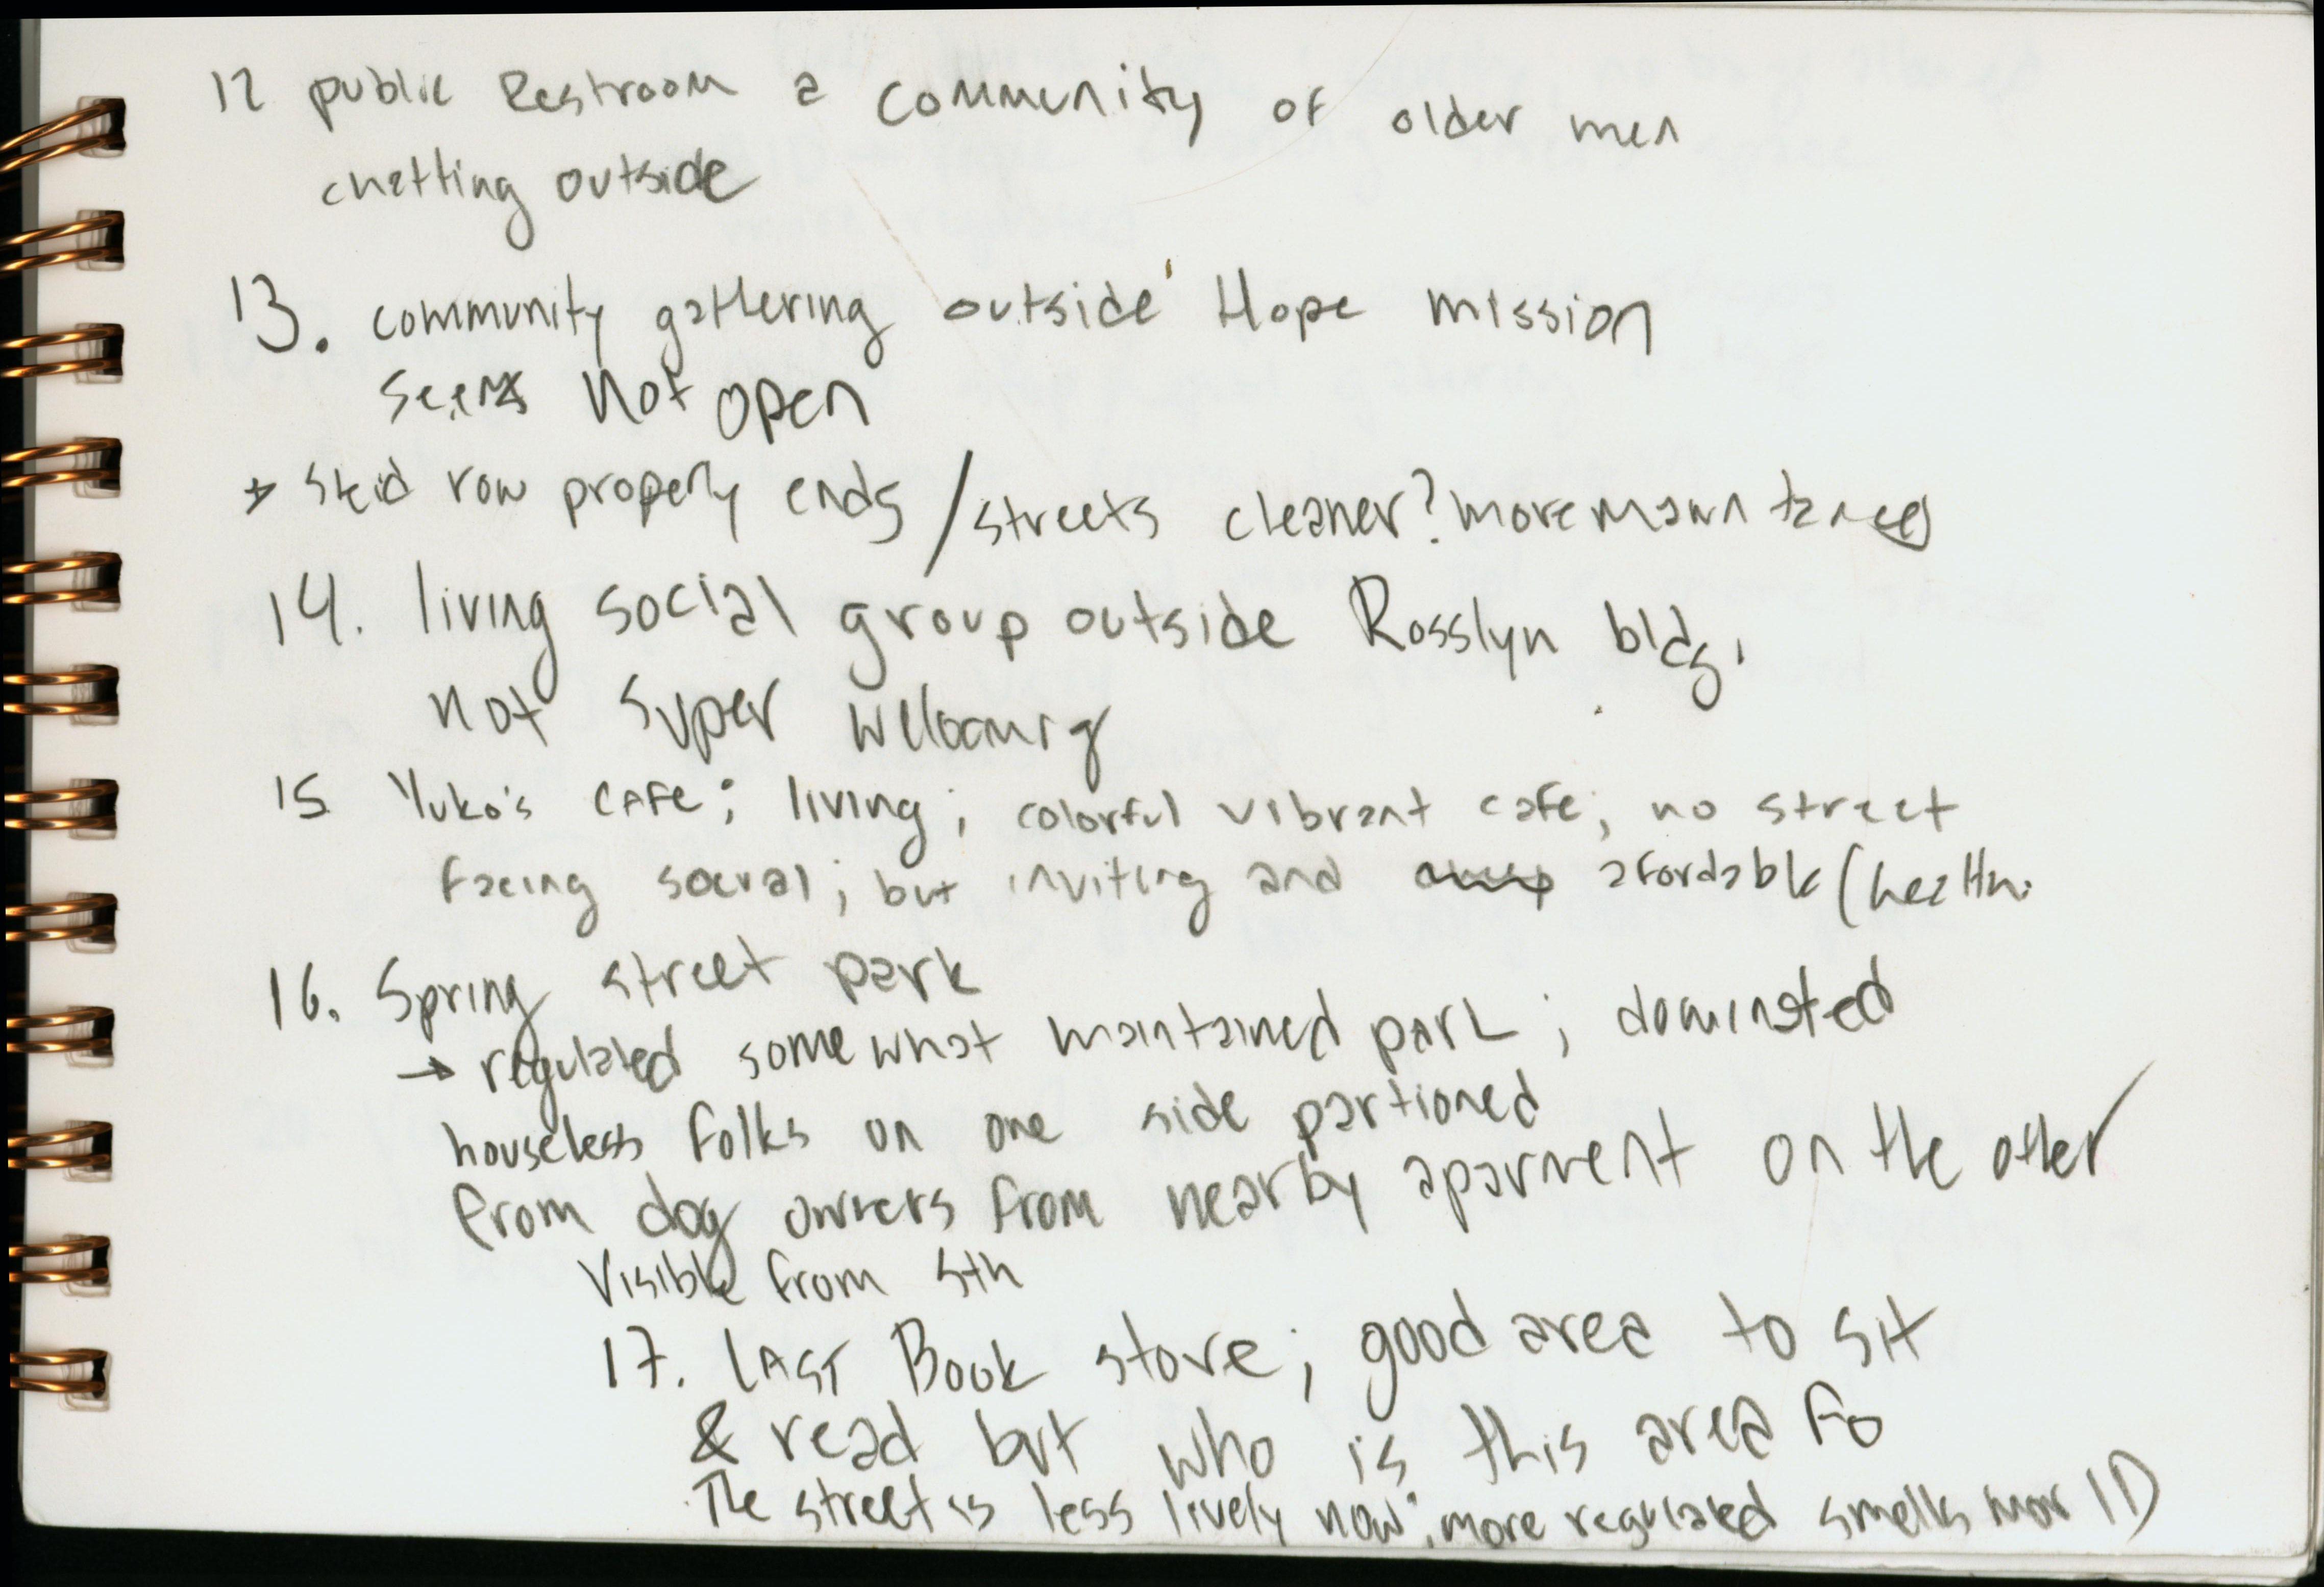 12 public Restroom a community of older men
chatting outside
13. community gathering outside Hope mission
seems not open
→ skid row property ends / streets cleaner? more
14. living social group outside Rosslyn bldg.
not super
15 Yuko's CAFE; living; colorful vibrant cafe; no street
facing social; but inviting and afordable (
16. Spring street park
→ regulated somewhat maintained park; dominated
houseless folks on one side partioned
from dog owners from nearby aparment on the other
Visible from 5th
17. LAST Book store; good area to sit
& read but who is this area fo
The street is less lively now; more regulated smells mor